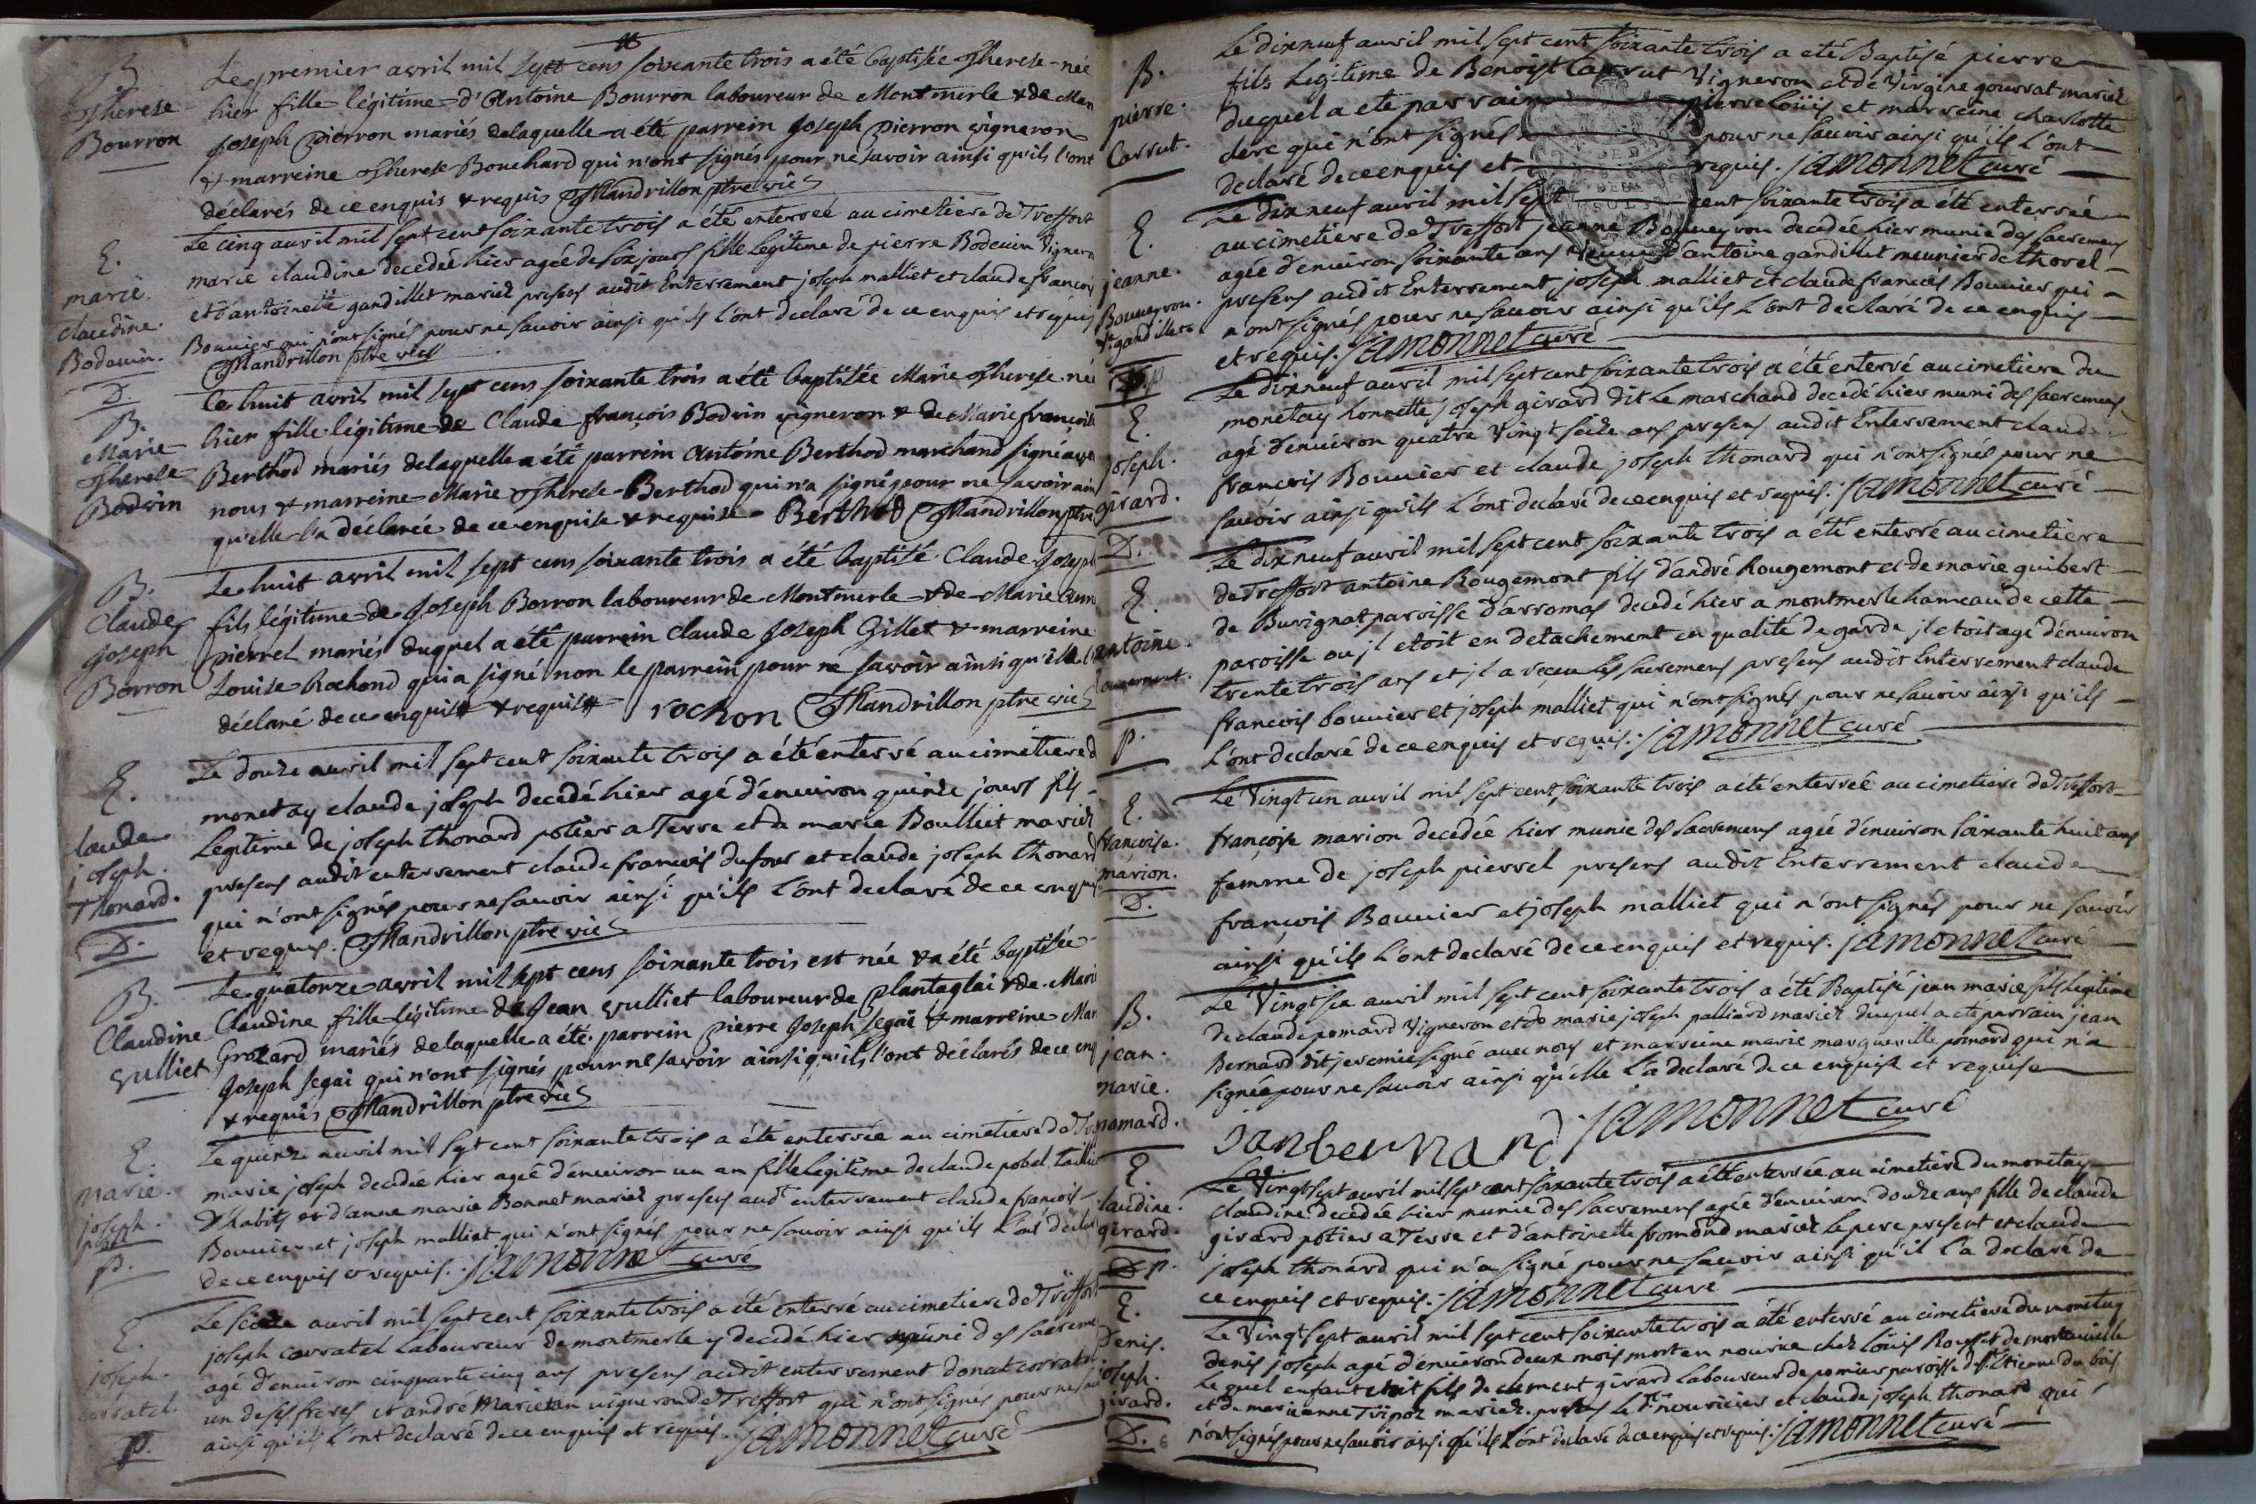 B.
Therese
Bourron
Le premier avril mil sept cens soixante trois a été baptisée Therese née
hier fille légitime d'Antoine Bourron laboureur de Montmerle & de
Joseph Pierron mariés delaquelle a été parrein Joseph Pierron vigneron
& marreine Therese Bouchard qui n'ont signés pour ne savoir ainsi qu'ils l'ont
déclarés de ce enquis & requis Mandrillon ptre vic
E.
marie
claudine.
Bodouin.
D.
Le cinq avril mil sept cent soixante trois a été enterrée au cimetiere de Treffort
marie claudine decedée hier agée de six jours fille legitime de pierre Bodouin Vigneron
et d'antoinette gandillet mariez presens audit Enterrement joseph malliet et claude françois
Bouvier qui n'ont signés pour ne savoir ainsi qu'ils l'ont declaré de ce enquis et requis
Mandrillon ptre vic
B.
Marie
Therese
Bodvin
Le huit avril mil sept cens soixante trois a été baptisée Marie Therese née
hier fille légitime de Claude françois Bodvin vigneron & de Marie françoise
Berthod mariés delaquelle a été parrein Antoine Berthod marchand signé avec
nous & marreine Marie Therese Berthod qui n'a signé pour ne savoir ainsi
qu'elle l'a déclarée de ce enquise & requise Berthod Mandrillon ptre
B.
Claude
Joseph
Borron
Le huit avril mil sept cens soixante trois a été baptisé Claude Joseph
fils légitime de Joseph Borron laboureur de Montmerle & de Marie Anne
Pierrel mariés duquel a été parrein Claude Joseph Gillet & marreine
Louise Rochond qui a signé non le parrein pour ne savoir ainsi qu'il l'a
déclaré de ce enquis & requis rochon Mandrillon ptre vic
E.
claude
joseph.
Thonard.
D.
Le douze avril mil sept cent soixante trois a été enterré au cimetiere d
monetay claude joseph decedé hier agé d'environ quinze jours fils
Legitime de joseph thonard potier a Terre et de marie Boulliet mariez
presens audit enterrement claude françois dufour et claude joseph thonard
qui n'ont signés pour ne savoir ainsi qu'ils l'ont declaré de ce enquis
et requis. Mandrillon ptre vic
B.
Claudine
Vulliet
Le quatorze avril mil sept cens soixante trois est née & a été baptisée
Claudine fille légitime de Jean Vulliet laboureur de Plantaglai & de Marie
Grozard mariés delaquelle a été parrein Pierre Joseph Segai & marreine Marie
Joseph Segai qui n'ont signés pour ne savoir ainsi qu'ils l'ont déclarés de ce enq
& requis Mandrillon ptre vic
E.
marie.
joseph.
pobel
p.
Le quinze avril mil sept cent soixante trois a été enterrée au cimetiere de Tre
marie joseph decedée hier agée d'environ un an fille legitime de claude pobel tailleur
d'habits et d'anne marie Bonnet mariez presens audt enterrement claude françois
Bouvier et joseph malliet qui n'ont signés pour ne savoir ainsi qu'ils l'ont declaré
de ce enquis et requis. jamonnet curé
E.
joseph.
corratel.
p.
Le seize avril mil sept cent soixante trois a été enterré au cimetiere de Treffort
joseph corratel Laboureur de montmerle y decedé hier muni des sacremens
agé d'environ cinquante cinq ans presens audit enterrement donat corratel
un de ses freres et andré Marietan vigneron de Treffort qui n'ont signés pour ne savoir
ainsi qu'ils l'ont declaré de ce enquis et requis. jamonnet curé
B.
pierre.
Carrut.
Le dix neuf avril mil sept cent soixante trois a eté Baptisé pierre
fils Legitime de Benoist Carrut Vigneron et de Virgine gourrat mariez
duquel a eté parrain pierre Loüis et marreine charlotte
dere qui n'ont signés pour ne savoir ainsi qu'ils l'ont
declaré de ce enquis et requis. jamonnet curé
E.
jeanne.
Bouveyron.
Ve gandillet
p
Le dix neuf avril mil sept cent soixante trois a été enterrée
au cimetiere de Treffort jeanne Bouveyron decedée hier munie des sacremens
agée d'environ soixante ans veuve d'antoine gandillet meunier de thorel
presens audit Enterrement joseph malliet et claude francois Bouvier qui
n'ont signés pour ne savoir ainsi qu'ils l'ont declaré de ce enquis
et requis. jamonnet curé
E.
joseph.
girard.
D.
Le dix neuf avril mil sept cent soixante trois a été enterré au cimetiere du
monetay honnette joseph girard dit Le marchand decedé hier muni des sacremens
agé d'environ quatre Vingt seize ans presens audit Enterrement claude
francois Bouvier et claude joseph thonard qui n'ont signés pour ne
savoir ainsi qu'ils l'ont declaré de ce enquis et requis. jamonnet curé
E.
antoine.
rougemont.
p.
Le dix neuf avril mil sept cent soixante trois a été enterré au cimetiere
de Treffort antoine Rougemont fils d'andré Rougemont et de marie guibert
de Buvignat paroisse d'arromas decedé hier a montmerle hameau de cette
paroisse ou jl etoit en detachement en qualité de garde jl etoit agé d'environ
trente trois ans et jl a reçeu Les sacremens presens audit Enterrement claude
francois bouvier et joseph malliet qui n'ont signés pour ne savoir ainsi qu'ils
l'ont declaré de ce enquis et requis. jamonnet curé
E.
francoise.
marion.
D.
Le Vingt un avril mil sept cent soixante trois a été enterrée au cimetiere de Treffort
françoise marion decedée hier munie des sacremens agée d'environ soixante huit ans
femme de joseph pierrel presens audit Enterrement claude
francois Bouvier et joseph malliet qui n'ont signés pour ne savoir
ainsi qu'ils l'ont declaré de ce enquis et requis. jamonnet curé
B.
jean.
marie.
pomard.
Le Vingt six avril mil sept cent soixante trois a été Baptisé jean marie fils Legitime
de claude pomard Vigneron et de marie joseph palliard mariez duquel a eté parrain jean
Bernard dit jeremie signé avec nous et marreine marie margueritte pomard qui n'a
signée pour ne savoir ainsi qu'elle l'a declaré de ce enquise et requise
janbernard jamonnet curé
E.
claudine.
girard.
p.
Le Vingt sept avril mil sept cent soixante trois a été enterrée au cimetiere du monetay
claudine decedée hier munie des sacremens agée d'environ douze ans fille de claude
girard potier a Terre et d'antoinette fromond mariez Le pere present et claude
joseph thonard qui n'a signé pour ne savoir ainsi qu'il l'a declaré de
ce enquis et requis. jamonnet curé
E.
Denis.
joseph.
girard.
D.
Le Vingt sept avril mil sept cent soixante trois a été enterré au cimetiere du monetay
denis joseph agé d'environ deux mois mort en nourice chez Loüis Rousset de
Le quel enfant etoit fils de clement girard Laboureur de pomier paroisse de St Etienne du bois
et de marianne Tripoz mariez. presens Le dt nouricier et claude joseph thonard qui
n'ont signés pour ne savoir ainsi qu'ils l'ont declaré de ce enquis et requis. jamonnet curé